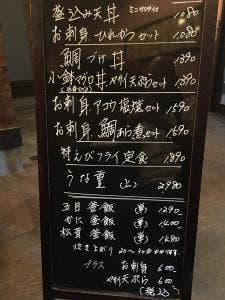 釜込み天丼 ミニサラダ付 1080
お刺身・ひれかつセット 1080
鯛づけ丼 1390
小鉢マグロ丼、やさい天ぷらセット
お刺身アコウ塩焼セット 1590
お刺身、鯛あら煮セット 1690
特えびフライ定食 1890
うな重 (上) 2,980
五目釜飯 (単) 1290
かに釜飯 (単) 1400
松茸釜飯 (単) 1480
炊き上がり 20〜30分かかります。
プラス お刺身 600
やさい天ぷら 600
(税込)